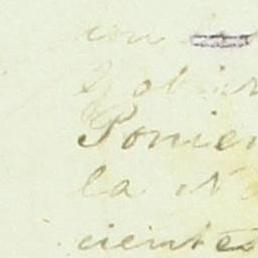 con la
Gobier
Ponien
la N
cientes